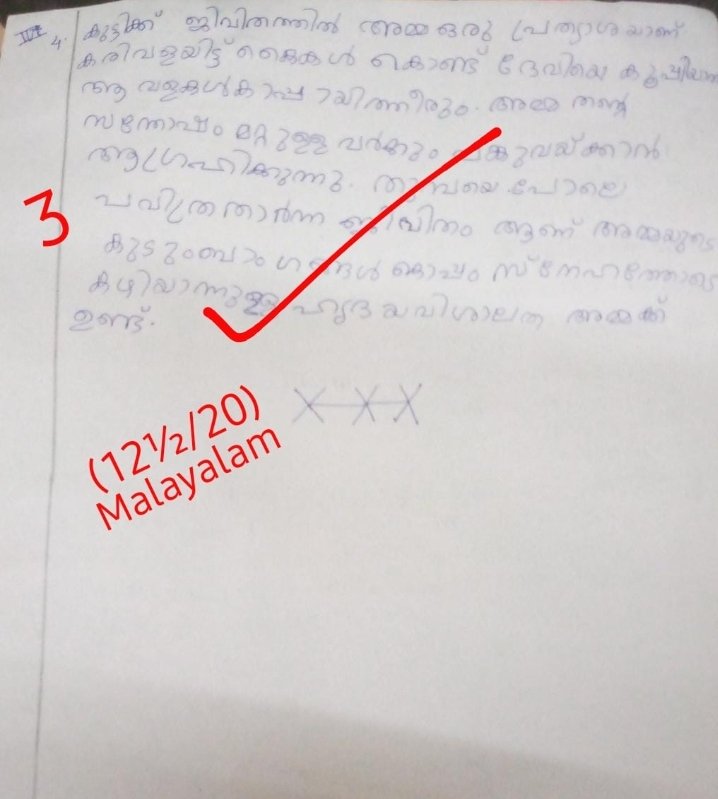 IV 4. കുട്ടിക്ക് ജീവിതത്തിൽ അമ്മ ഒരു പ്രത്യാശയാണ്
കരിവളയിട്ട് കൈകൾ കൊണ്ട് ദേവിയെ
ആ വളകൾ അമ്മ തന്റെ
സന്തോഷം മറ്റുള്ളവർക്കും പങ്കുവയ്ക്കാൻ
ആഗ്രഹിക്കുന്നു. തുമ്പയെ പോലെ
3 പവിത്രതാർന്ന ജീവിതം ആണ് അമ്മയുടെ
കുടുംബാംഗങ്ങൾ കൊപ്പം സ്നേഹത്തോടെ
കഴിയാന്നുള്ള ഹൃദയവിശാലത അമ്മക്ക്
ഉണ്ട്.
(12½/20)
Malayalam